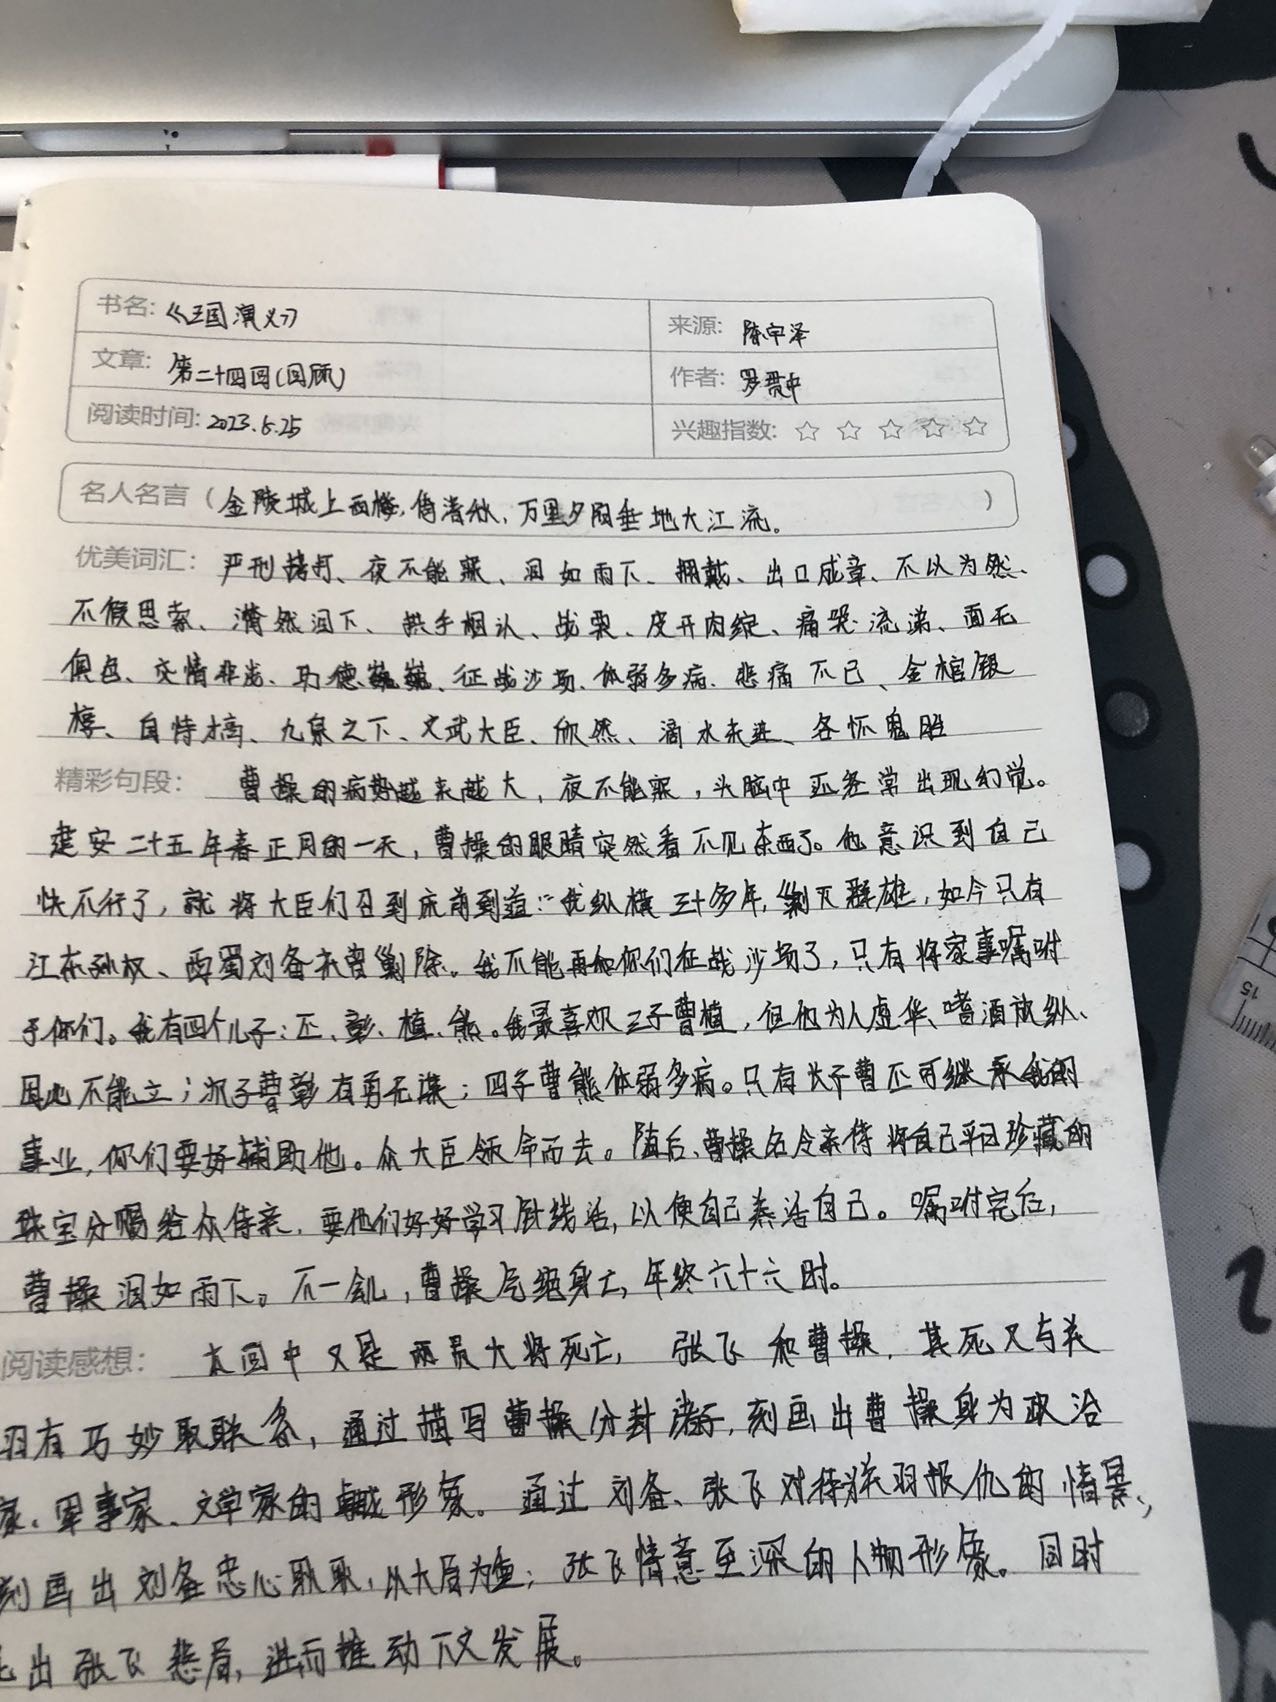 书名:《三国演义》
来源: 陈宇泽
文章: 第二十四回(回顾)
作者: 罗贯中
阅读时间: 2023.6.25
兴趣指数: ☆ ☆ ☆ ☆ ☆
名人名言 ( 金陵城上西楼,倚清秋,万里夕阳垂地大江流。 )
优美词汇: 严刑拷打、夜不能寐、泪如雨下、拥戴、出口成章、不以为然、
不假思索、潸然泪下、拱手相认、战栗、皮开肉绽、痛哭流涕、面无
俱色、交情非浅、功德巍巍、征战沙场、体弱多病、悲痛不已、金棺银
椁、自恃才高、九泉之下、文武大臣、欣然、滴水未进、各怀鬼胎
精彩句段: 曹操的病势越来越大,夜不能寐,头脑中还经常出现幻觉。
建安二十五年春正月的一天,曹操的眼睛突然看不见东西了。他意识到自己
快不行了,就将大臣们召到床前到道:“我纵横三十多年,剿灭群雄,如今只有
江东孙权、西蜀刘备未曾剿除。我不能再和你们征战沙场了,只有将家事嘱咐
于你们。我有四个儿子:丕、彰、植、熊。我最喜欢三子曹植,但他为人虚华、嗜酒放纵、
因此不能立;次子曹彰有勇无谋;四子曹熊体弱多病。只有长子曹丕可继承我的
事业,你们要好辅助他。众大臣领命而去。随后、曹操名令亲侍将自己平日珍藏的
珠宝分赐给众侍妾,要他们好好学习针线活,以便自己养活自己。嘱咐完后,
曹操泪如雨下。不一会儿,曹操气绝身亡,年终六十六时。
阅读感想: 本回中又是两员大将死亡, 张飞和曹操,其死又与关
羽有巧妙取联系,通过描写曹操分封诸子,刻画出曹操身为政治
家、军事家、文学家的卓越形象。通过刘备、张飞对待关羽报仇的情景,
刻画出刘备忠心耿耿,以大局为重;张飞情意至深的人物形象。同时
出张飞悲局,进而推动下文发展。
15